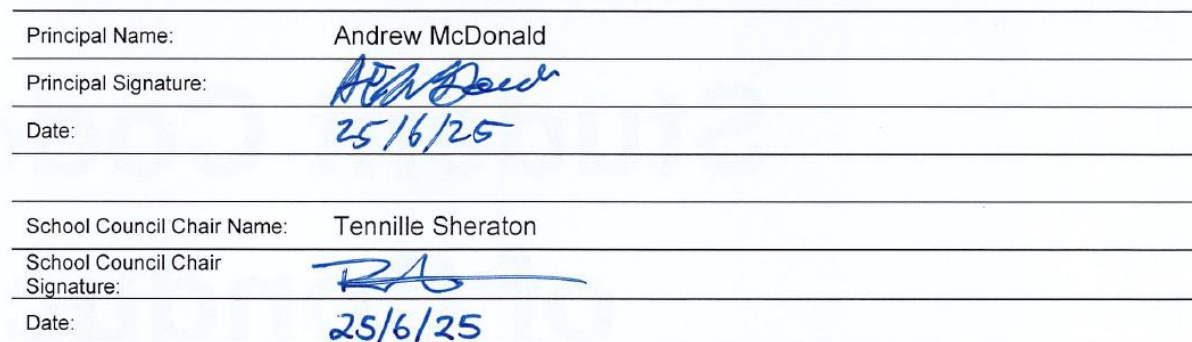 Principal Name: Andrew McDonald
Principal Signature:
Date: 25/6/25
School Council Chair Name: Tennille Sheraton
School Council Chair
Signature:
Date: 25/6/25